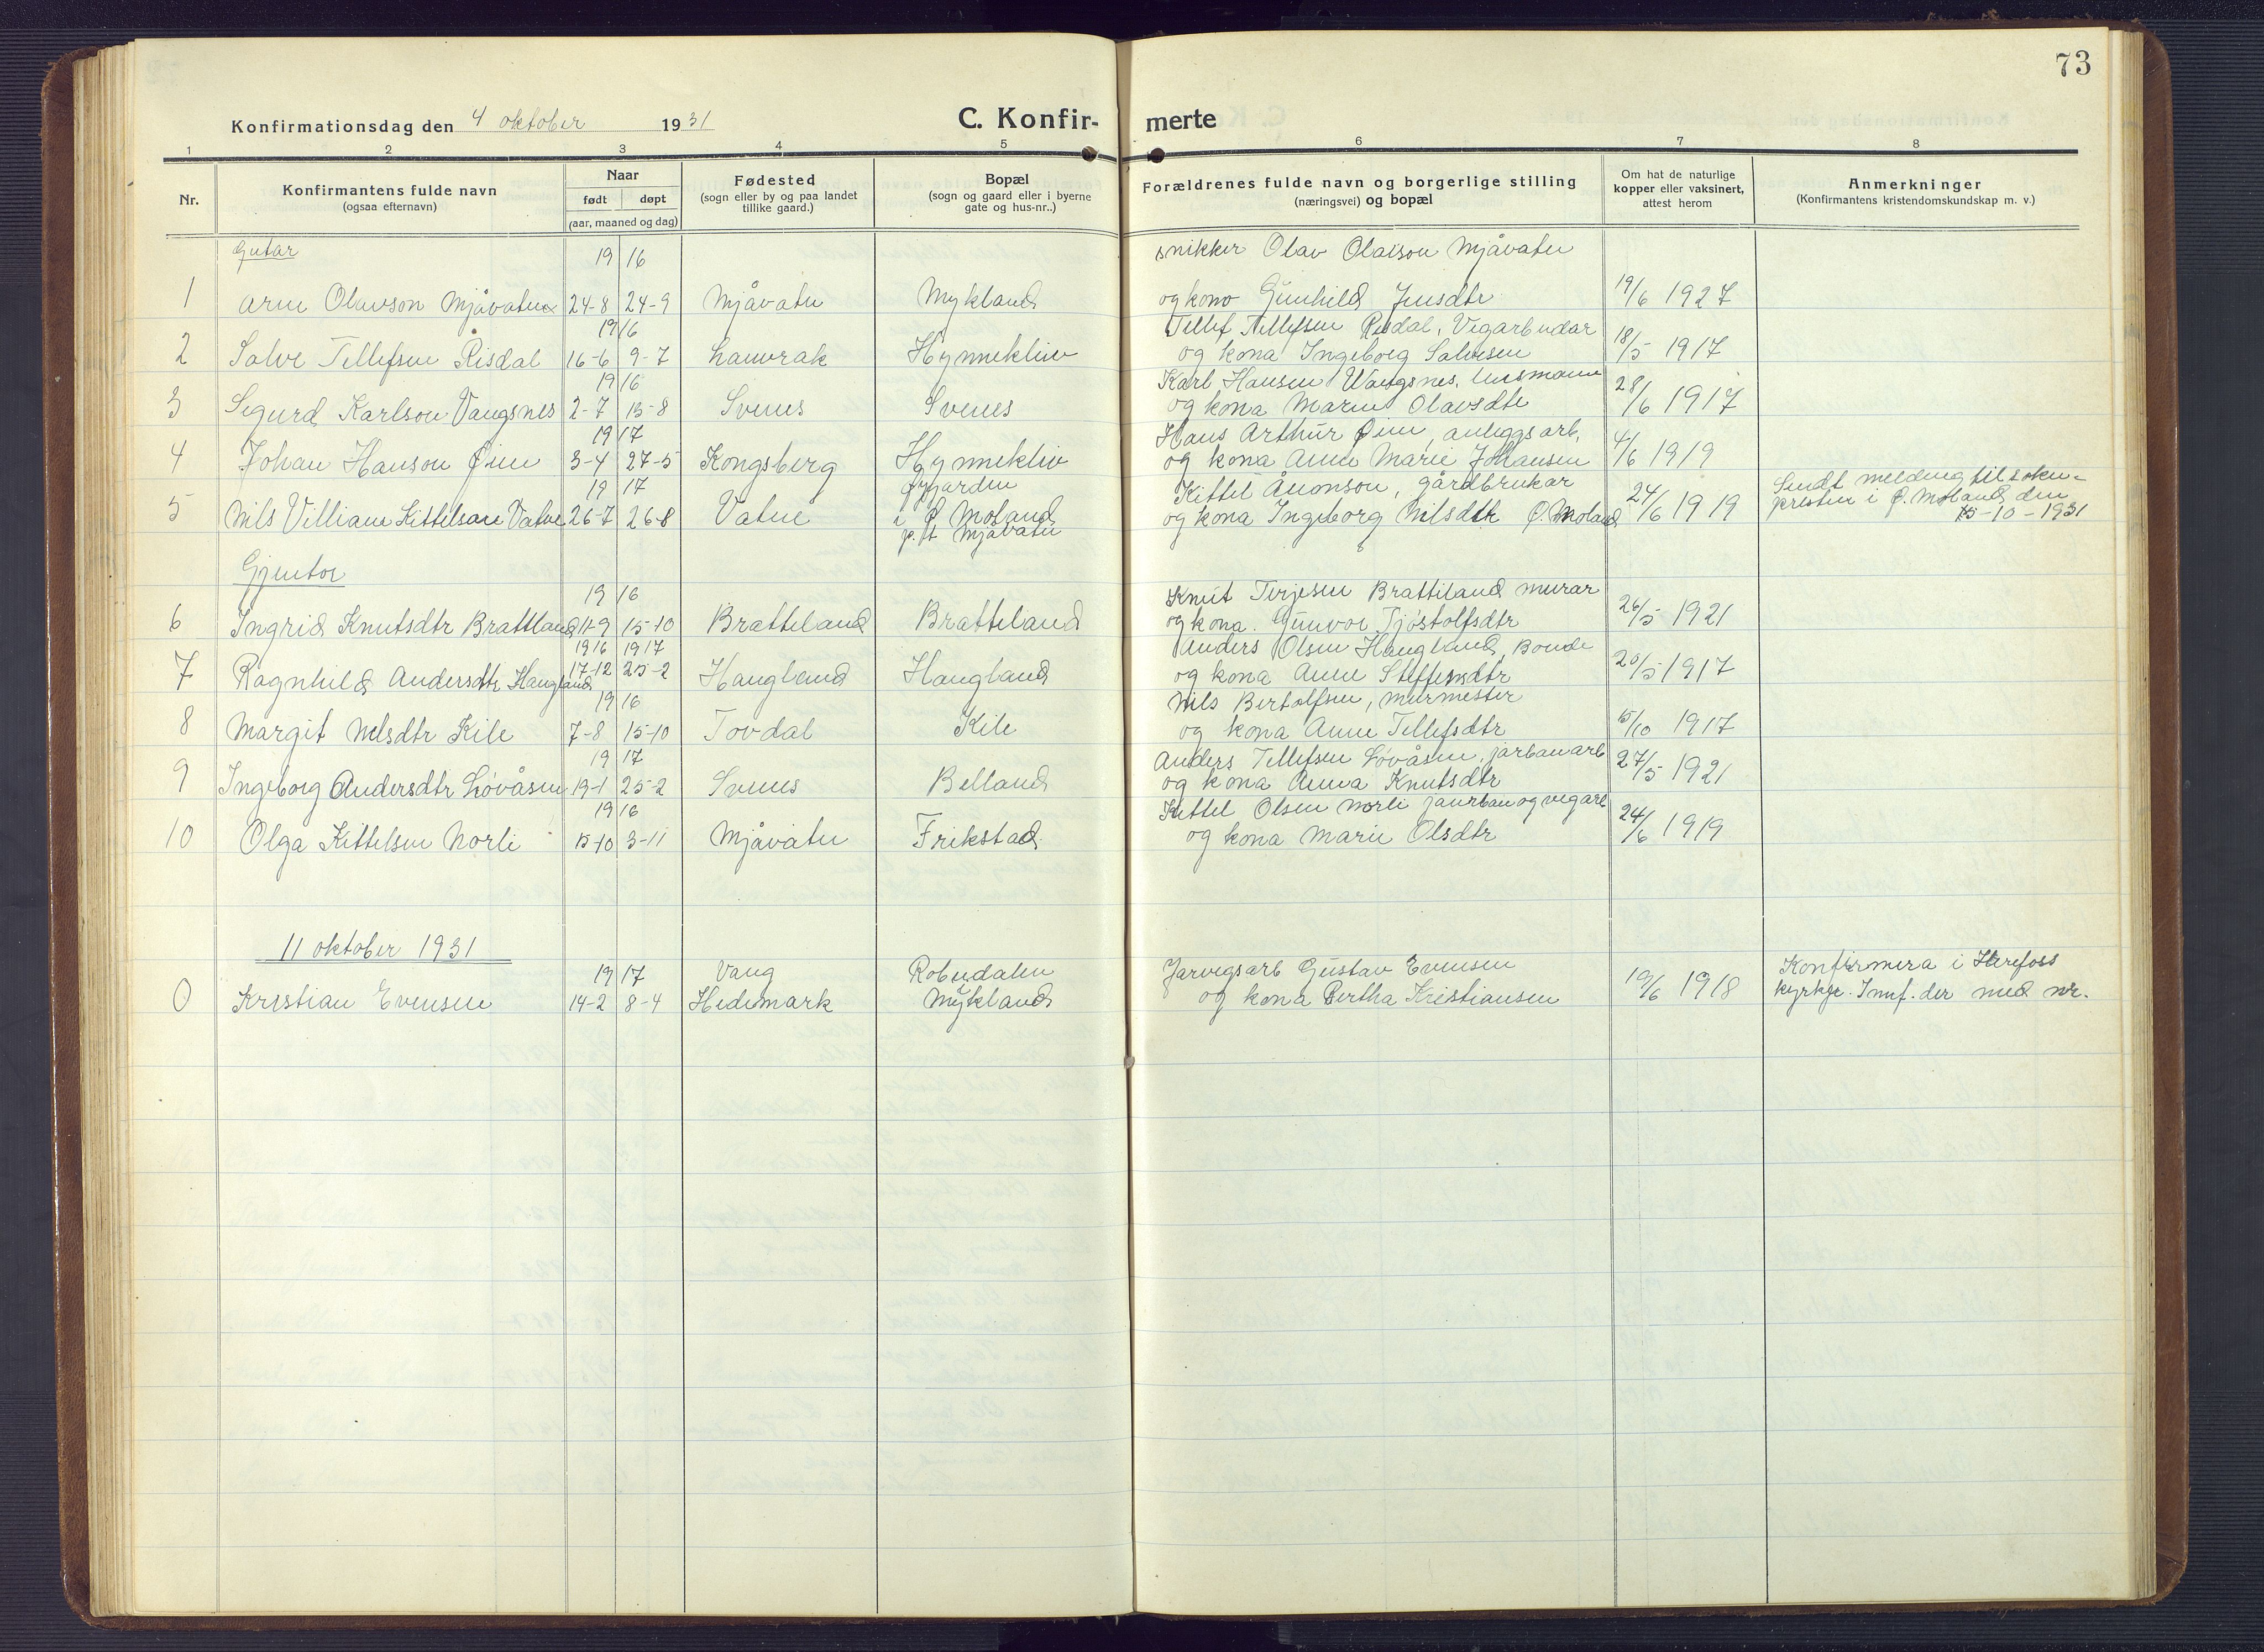 73
Konfirmationsdag den 4 oktober 1931 C. Konfir- merte
1 2 3 4 5 6 7 8
Nr. Konfirmantens fulde navn (ogsaa efternavn) Naar født døpt (aar, maaned og dag) Fødested (sogn eller by og paa landet tillike gaard.) Bopæl (sogn og gaard eller i byerne gate og hus-nr..) Forældrenes fulde navn og borgerlige stilling (næringsvei) og bopæl Om hat de naturlige kopper eller vaksinert, attest herom Anmerkninger (Konfirmantens kristendomskundskap m. v.)
Gutar 19 16 snikker Olav Olaison Mjåvatn
1 Arne Olavson Mjåvatn 24-8 24-9 Mjåvatn Mykland og kono Gunhild Jensdtr 19/6 1927
19 16 Tellef Tellefsen Risdal, Vegarbudar
2 Salve Tellefsen Risdal 16-6 9-7 Lauvrak Hynnekliv og kona Ingeborg Salvesen 18/5 1917
19 16 Karl Hansen Wangsnes, husmann
3 Sigurd Karlson Vangsnes 2-7 13-8 Svenes Svenes og kona Maren Olavsdtr 28/6 1917
19 17 Hans Arthur Øien, anleggsarb.
4 Johan Hanson Øien 3-4 27-5 Kongsberg Hynnekliv og kona Anne Marie Johansen 4/6 1919
19 17 Øygarden Kittel Ånonson, gårdbrukar Sendt melding til sokn-
5 Nils Villiam Kittelson Vatne 26-7 26-8 Vatne i Ø. Moland og kona Ingeborg Nilsdtr Ø. Moland 24/6 1919 presten i Ø. Moland den
p.t. Mjåvatn 15-10-1931
Gjentor
19 16 Knut Terjesen Bratteland murar
6 Ingrid Knutsdtr Brattland 11-9 15-10 Bratteland Bratteland og kona. Gunvor Tjöstolfsdtr 26/5 1921
1916 1917 Anders Olsen Haugland, Bonde
7 Ragnhild Andersdtr Haugland 17-12 25-2 Haugland Haugland og kona Anne Steffensdtr 20/5 1917
19 16 Nils Bertolfsen, murmester
8 Margit Nilsdtr Kile 7-8 15-10 Tovdal Kile og kona Anne Tellefsdtr 5/10 1917
19 17 Anders Tellefsen Lövåsen, jarbanarb
9 Ingeborg Andersdtr Lövåsen 19-1 25-2 Svenes Belland og kona Anna Knutsdtr 27/5 1921
19 16 Kittel Olsen Norli jarnban og vegarb
10 Olga Kittelsen Norli 15-10 3-11 Mjåvatn Frikstad og kona Marie Olsdtr 24/6 1919
11 oktober 1931
19 17 Vang Robudalen Jarvegsarb Gustav Evensen Konfirmera i Herefoss
0 Kristian Evensen 14-2 8-4 Hedemark Mykland og kona Bertha Kristiansen 19/6 1918 kyrkje. Innf. der med nr.